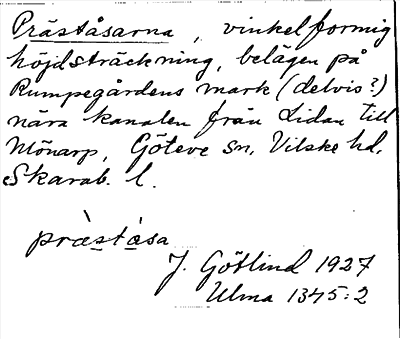 Präståsarna, vinkelformig
höjdsträckning, belägen på
Rumpegårdens mark (delvis?)
nära kanalen från Lidan till
Mönarp, Göteve sn, Vilske hd,
Skarab. l.
præ̀stása
J. Götlind 1927
Ulma 1345:2